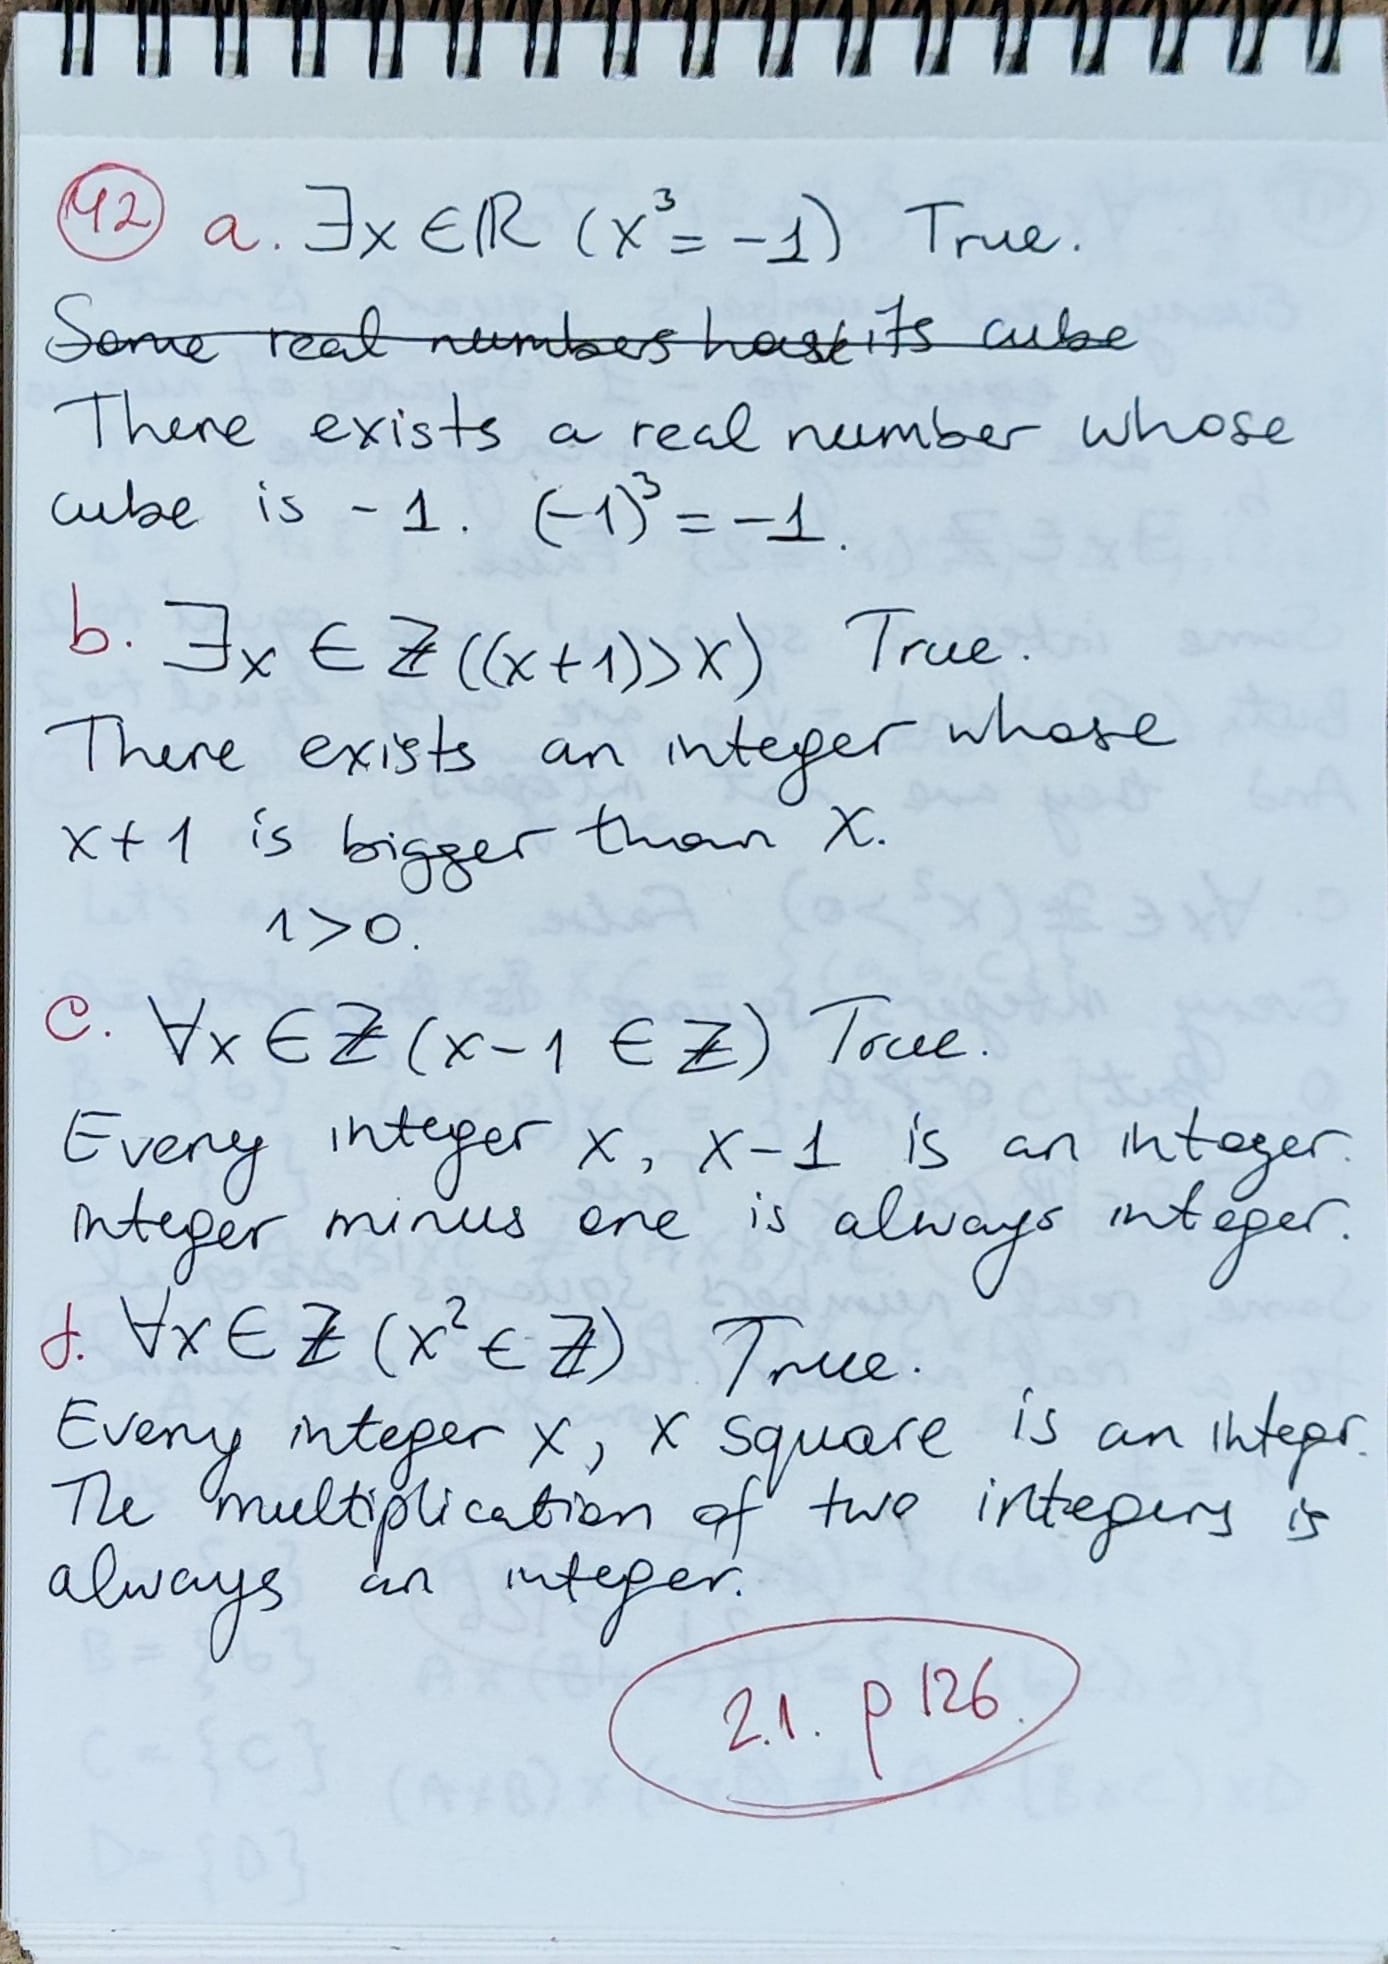 42 a. ∃x ∈ ℝ (x³ = -1) True.
Some real numbers has its cube
There exists a real number whose
cube is -1. (-1)³ = -1.
b. ∃x ∈ ℤ ((x+1)>x) True.
There exists an integer whose
x+1 is bigger than x.
1>0.
c. ∀x ∈ ℤ (x-1 ∈ ℤ) True.
Every integer x, x-1 is an integer.
integer minus one is always integer.
d. ∀x ∈ ℤ (x² ∈ ℤ) True.
Every integer x, x square is an integer.
The multiplication of two integers is
always an integer.
2.1. p 126.